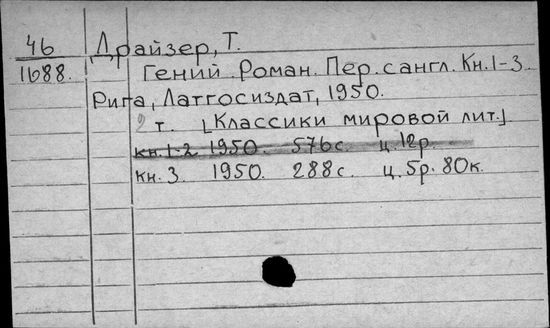 46 Драйзер, Т.
1688. Гений. Роман. Пер. с англ. Кн. 1-3
Рига, Латгосиздат, 1950.
2 т. [Классики мировой лит.]
кн. 1-2 1950. 576 с. ц. 12р.
кн. 3 1950. 288с. ц. 5р. 80к.